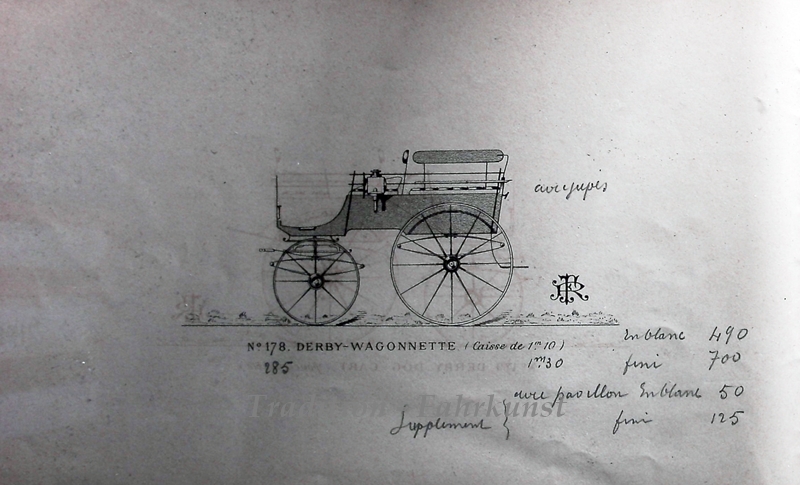 avec jupes
TR
En blanc 490
Nº 178. DERBY-WAGONNETTE (Caisse de 1m10)
285 1m30 fini 700
avec pavillon En blanc 50
Tradition Fahrkunst
Supplement { fini 125